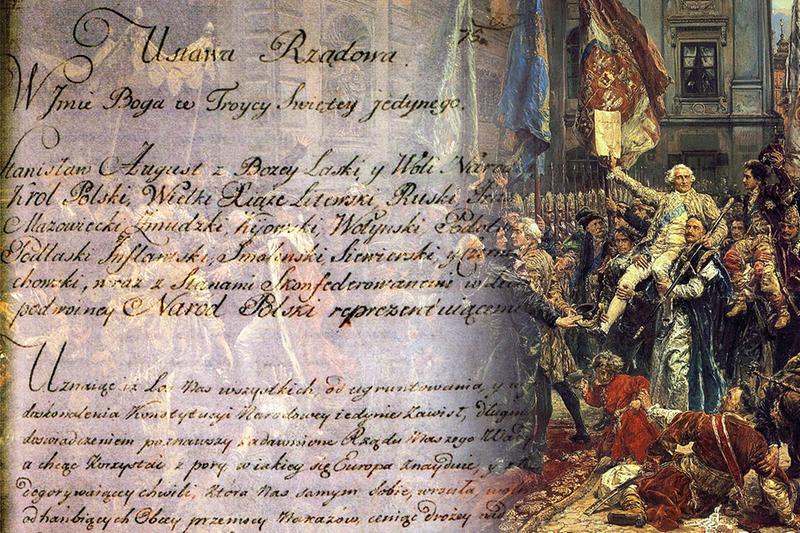 Ustawa Rządowa.
W Jmie Boga w Troycy Swiętey jedynego.
Stanisław August z Bozey Łaski y Woli Narod
Krol Polski, Wielki Xiąze Litewski, Ruski
Mazowiecki Zmudzki, Kijowski, Wołynski Podol
Podlaski Inflantski, Smolenski Siewierski, y Czernie
chowski, wraz z Stanami Skonfederowanemi w liczbie
podwoiney Narod Polski reprezentuiącemi
Uznaiąc iz Los Nas wszystkich, od ugruntowania, y w
doskonalenia Konstytucyi Narodowey iedynie zawisł, długim
doswiadczeniem poznawszy zadawnione Rządu Naszego Wady
a chcąc korzystać z pory w iakiey się Europa znayduie, y z
dogorywaiącey chwili, ktora Nas samym Sobie, wrociła, wolni
od hanbiących Obcey przemocy Nakazow, ceniąc drozey nad